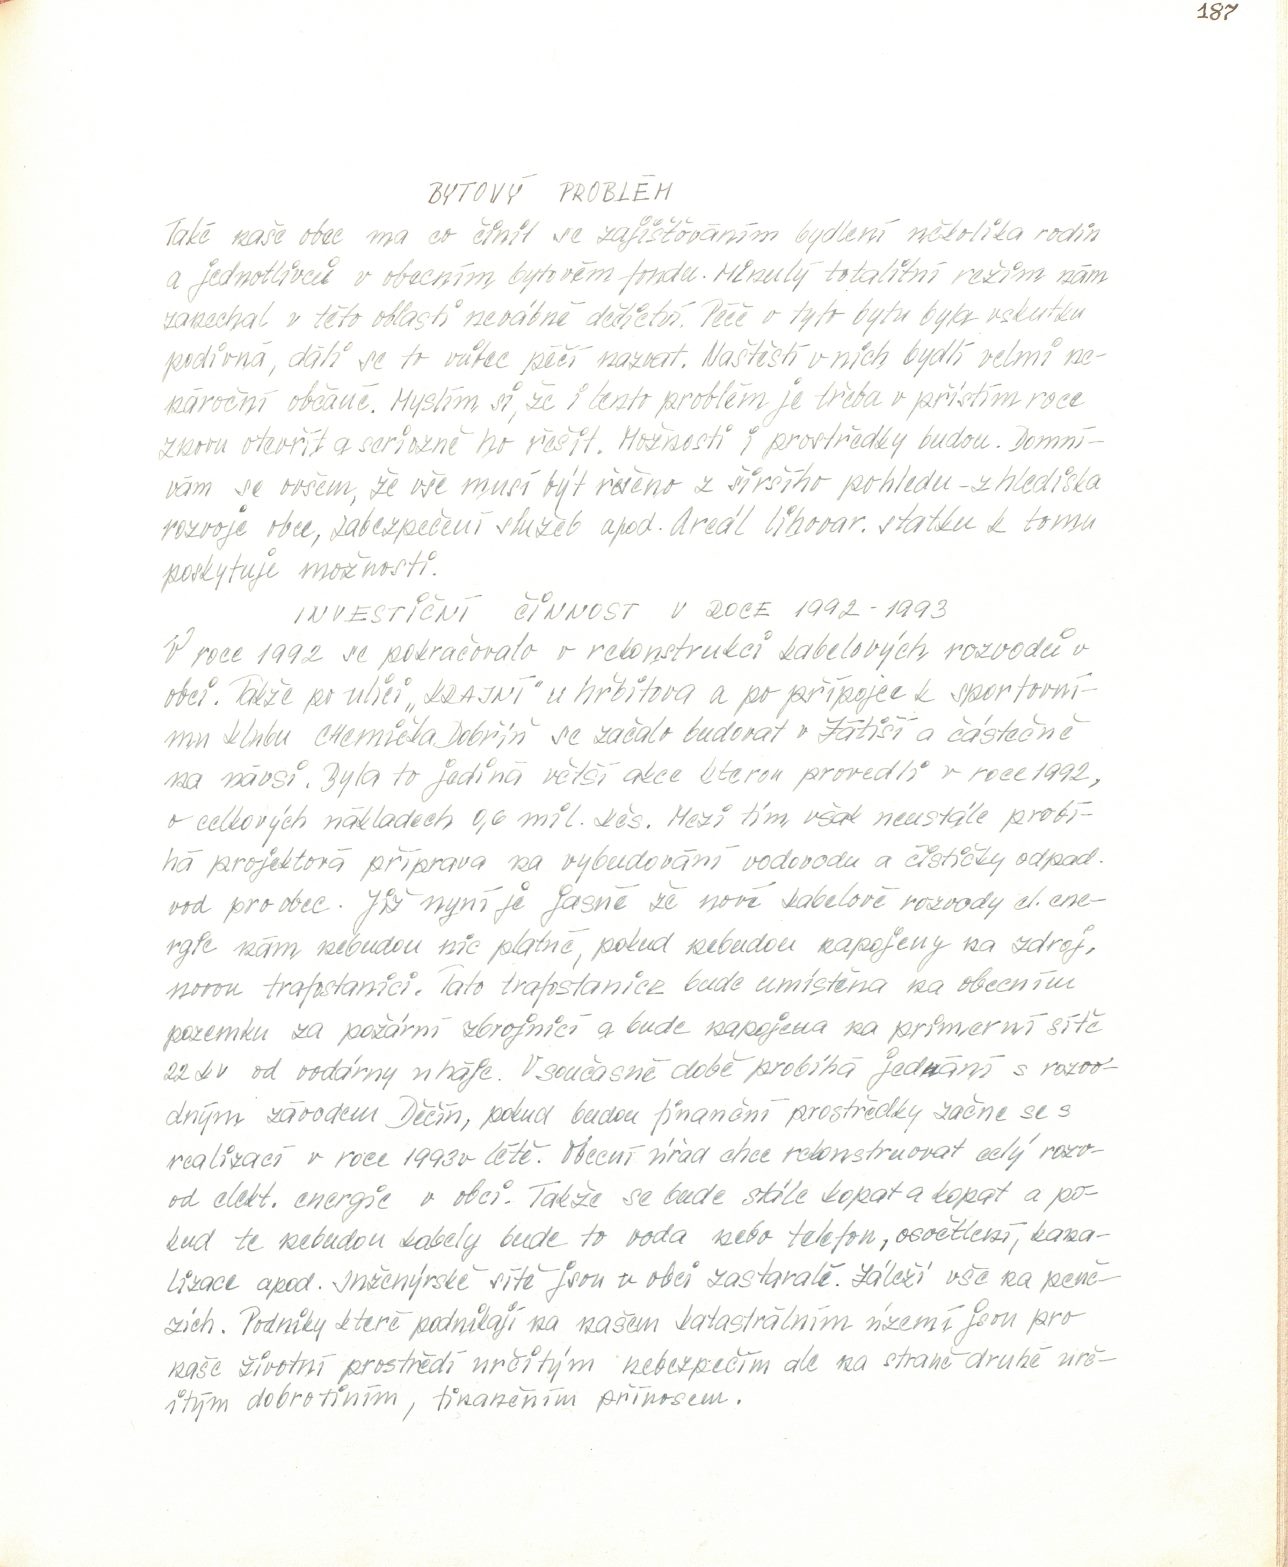 187
BYTOVÝ PROBLÉM
Také naše obec ma co činit se zajišťováním bydlení několika rodin
a jednotlivců v obecním bytovém fondu. Minulý totalitní režim nám
zanechal v této oblasti neváběné dědictví. Péče o tyto bytu byla vskutku
podivná, dáli se to vůbec péčí nazvat. Naštěstí v nich bydlí velmi ne-
nároční občané. Myslím si, že i tento problém je třeba v příštím roce
znovu otevřít a seriozně ho řešit. Možnosti i prostředky budou. Domní-
vám se ovšem, že vše musí být řešeno z širšího pohledu - z hlediska
rozvoje obce, zabezpečení služeb apod. Areál lihovar. statku k tomu
poskytuje možnosti.
INVESTIČNÍ ČINNOST V ROCE 1992 - 1993
V roce 1992 se pokračovalo v rekonstrukci kabelových rozvodů v
obci. Takže po ulici „KRAJNÍ" u hřbitova a po přípojce k sportovní-
mu klubu CHemička Dobříň se začalo budovat v Zátiší a částečně
na návsi. Byla to jediná větší akce kterou provedli v roce 1992,
o celkových nákladech 0,6 mil. kčs. Mezi tím však neustále probí-
há projektová příprava na vybudování vodovodu a čističky odpad.
vod pro obec. Již nyní je jasné že nové kabelové rozvody el. ene-
rgie nám nebudou nic platné, pokud nebudou napojeny na zdroj,
novou trafostanici. Tato trafostanice bude umístěna na obecním
pozemku za požární zbrojnicí a bude napojena na primerní sítě
22 kV od vodárny u háje. V současné době probíhá jednání s rozvo-
dným závodem Děčín, pokud budou finanční prostředky začne se s
realizací v roce 1993 v létě. Obecní úřad chce rekonstruovat celý rozv-
od elekt. energie v obci. Takže se bude stále kopat a kopat a po-
kud te nebudou kabely bude to voda nebo telefon, osvětlení, kana-
lizace apod. Inženýrské sítě jsou v obci zastaralé. Záleží vše na peně-
zích. Podniky které podnikají na našem katastrálním území jsou pro
naše životní prostředí určitým nebezpečím ale na straně druhé urč-
itým dobrotiním, finančním přínosem.